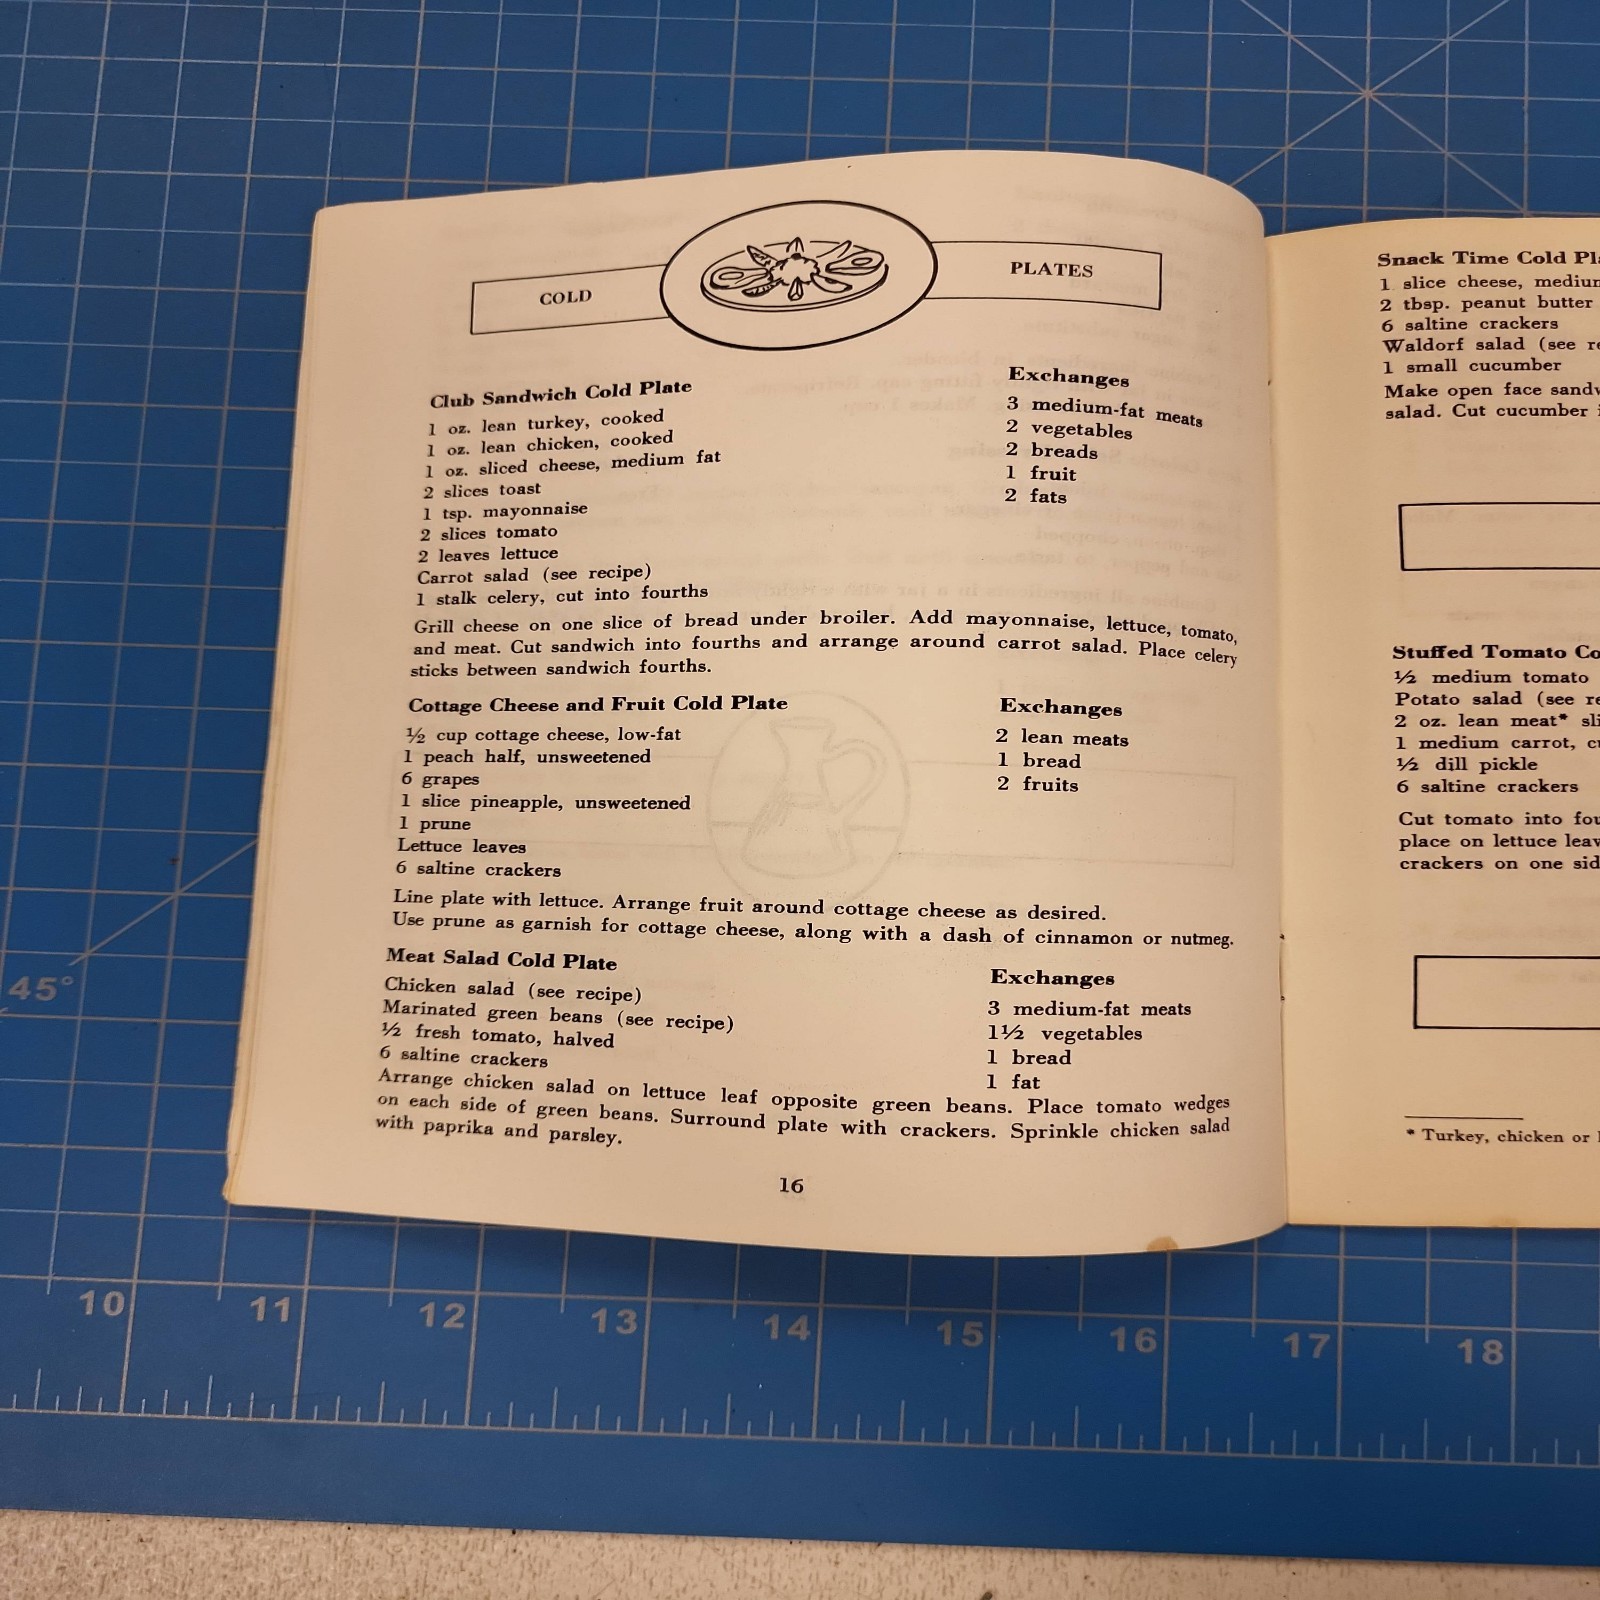 COLD
PLATES
Club Sandwich Cold Plate
1 oz. lean turkey, cooked
1 oz. lean chicken, cooked
1 oz. sliced cheese, medium fat
2 slices toast
1 tsp. mayonnaise
2 slices tomato
2 leaves lettuce
Carrot salad (see recipe)
1 stalk celery, cut into fourths
Exchanges
3 medium-fat meats
2 vegetables
2 breads
1 fruit
2 fats
Grill cheese on one slice of bread under broiler. Add mayonnaise, lettuce, tomato,
and meat. Cut sandwich into fourths and arrange around carrot salad. Place celery
sticks between sandwich fourths.
Cottage Cheese and Fruit Cold Plate
½ cup cottage cheese, low-fat
1 peach half, unsweetened
6 grapes
1 slice pineapple, unsweetened
1 prune
Lettuce leaves
6 saltine crackers
Exchanges
2 lean meats
1 bread
2 fruits
Line plate with lettuce. Arrange fruit around cottage cheese as desired.
Use prune as garnish for cottage cheese, along with a dash of cinnamon or nutmeg.
Meat Salad Cold Plate
Chicken salad (see recipe)
Marinated green beans (see recipe)
½ fresh tomato, halved
6 saltine crackers
Exchanges
3 medium-fat meats
1½ vegetables
1 bread
1 fat
Arrange chicken salad on lettuce leaf opposite green beans. Place tomato wedges
on each side of green beans. Surround plate with crackers. Sprinkle chicken salad
with paprika and parsley.
16
Snack Time Cold
1 slice cheese,
2 tbsp. peanut butter
6 saltine crackers
Waldorf salad (see
1 small cucumber
Make open face
salad. Cut cucumber
Stuffed Tomato
½ medium tomato
Potato salad (see
2 oz. lean meat*
1 medium carrot,
½ dill pickle
6 saltine crackers
Cut tomato into
place on lettuce
crackers on one
* Turkey, chicken or
45°
10 11 12 13 14 15 16 17 18